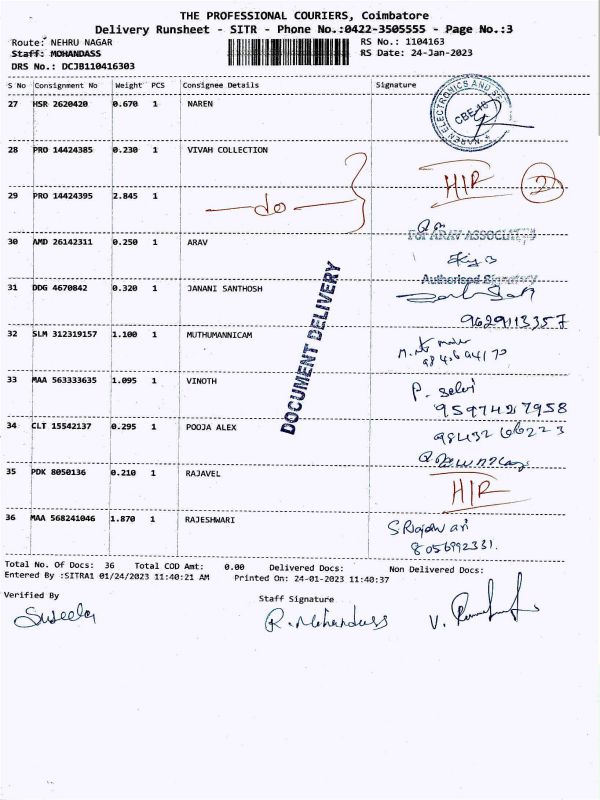 THE PROFESSIONAL COURIERS, Coimbatore
Delivery Runsheet - SITR - Phone No.:0422-3505555 - Page No.:3
Route: NEHRU NAGAR RS No.: 1104163
Staff: MOHANDASS RS Date: 24-Jan-2023
DRS No.: DCJB110416303
S No Consignment No Weight PCS Consignee Details Signature
27 HSR 2620420 0.670 1 NAREN
28 PRO 14424385 0.230 1 VIVAH COLLECTION HIR 2
29 PRO 14424395 2.845 1 do
For ARAV ASSOCIATES
30 AMD 26142311 0.250 1 ARAV
Authorised Signatory
31 DDG 4670842 0.320 1 JANANI SANTHOSH
9629113357
DOCUMENT DELIVERY
32 SLM 312319157 1.100 1 MUTHUMANNICAM
33 MAA 563333635 1.095 1 VINOTH P. Selvi
34 CLT 15542137 0.295 1 POOJA ALEX
35 PDK 8050136 0.210 1 RAJAVEL HIR
36 MAA 568241046 1.870 1 RAJESHWARI
Total No. Of Docs: 36 Total COD Amt: 0.00 Delivered Docs: Non Delivered Docs:
Entered By :SITRA1 01/24/2023 11:40:21 AM Printed On: 24-01-2023 11:40:37
Verified By Staff Signature
Suseela R. Mohandass